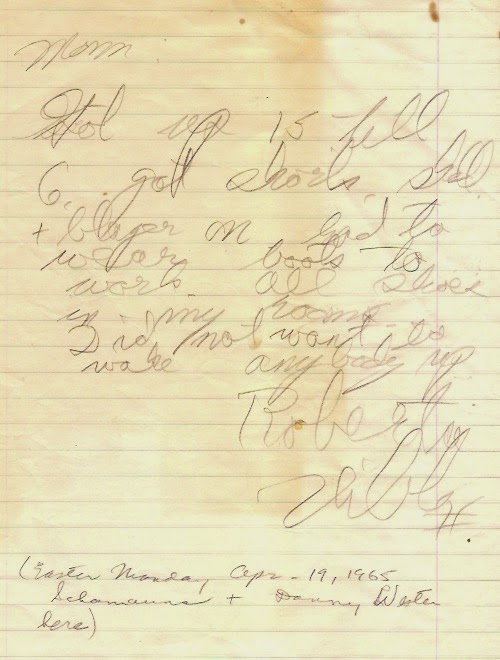 Mom
up 15 till
6. got shorts
+ blazer on had to
wear boots to
work. all shoes
in my room.
Did not want to
wake anybody up
Robert
(Easter Monday, Apr. 19, 1965
+ Danny Wester
here)